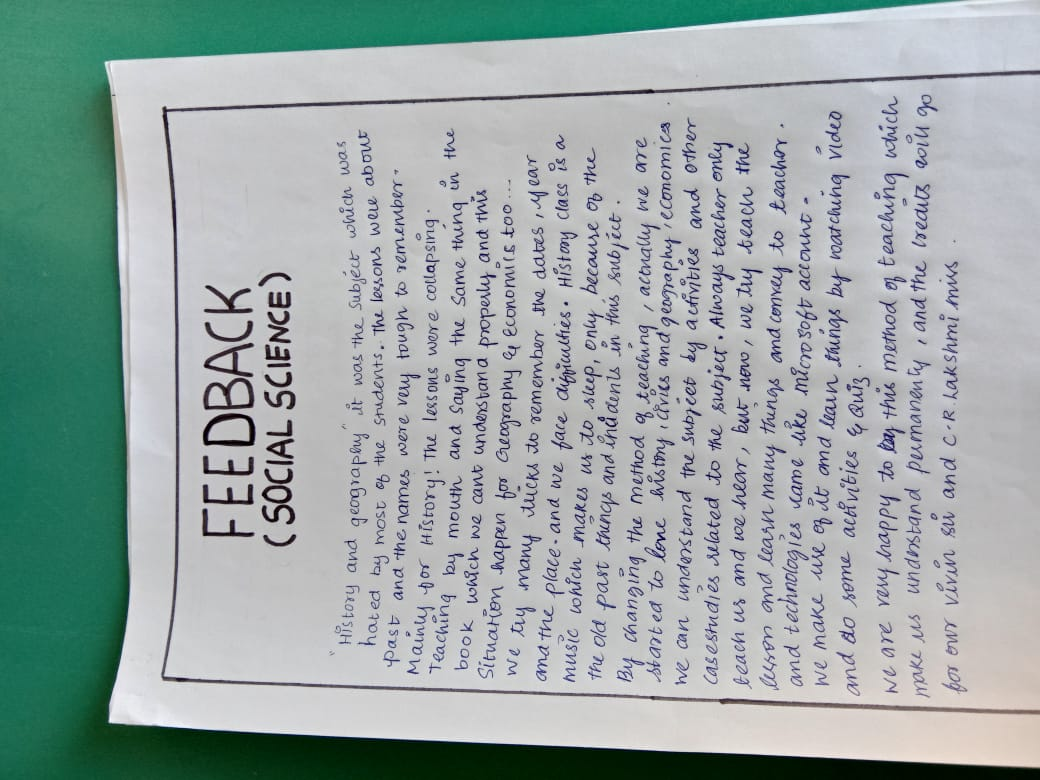 FEEDBACK
(SOCIAL SCIENCE)
"History and geography" it was the subject which was
hated by most of the students. The lessons were about
past and the names were very tough to remember.
Mainly for History! The lessons were collapsing.
Teaching by mouth and saying the same thing in the
book which we cant understand properly and this
Situation happen for Geography & Economics too...
we try many tricks to remember the dates, year
and the place. and we face difficulties. History class is a
music which makes us to sleep, only because of the
the old past things and indidents in this subject.
By changing the method of teaching, actually we are
started to love history, civics and geography, economics.
we can understand the subject by activities and other
casestudies related to the subject. Always teacher only
teach us and we hear, but now, we try teach the
lesson and learn many things and convey to teacher.
and technologies came like microsoft account.
we make use of it and learn things by watching video
and do some activities & quiz.
we are very happy to this method of teaching which
make us understand permanenty, and the credits will go
for our vivin sir and C.R. Lakshmi mis .